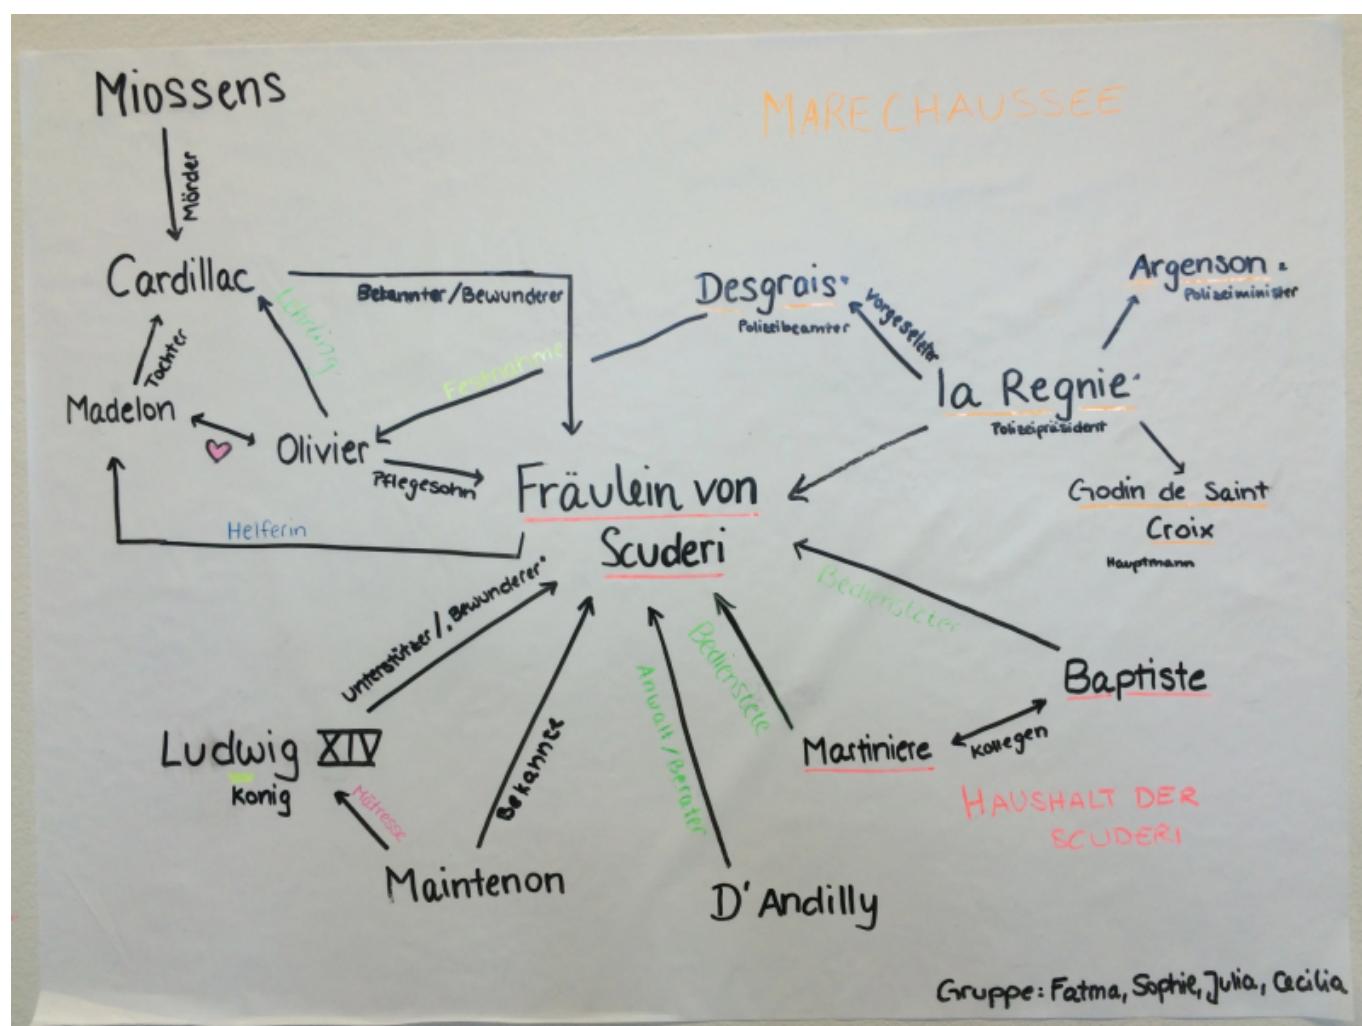 Miossens
MARECHAUSSEE
Mörder
Cardillac
Bekannter/Bewunderer
Lehrling
Desgrais
Polizeibeamter
Vorgesetzter
Argenson
Polizeiminister
Tochter
Festnahme
la Regnie
Polizeipräsident
Madelon
Olivier
Pflegesohn
Fräulein von
Scuderi
Godin de Saint
Croix
Hauptmann
Helferin
Unterstützer/Bewunderer
Bediensteter
Bedienstete
Anwalt/Berater
Baptiste
Ludwig XIV
König
Martiniere
Kollegen
Bekannte
Mätresse
HAUSHALT DER
SCUDERI
Maintenon
D'Andilly
Gruppe: Fatma, Sophie, Julia, Cecilia